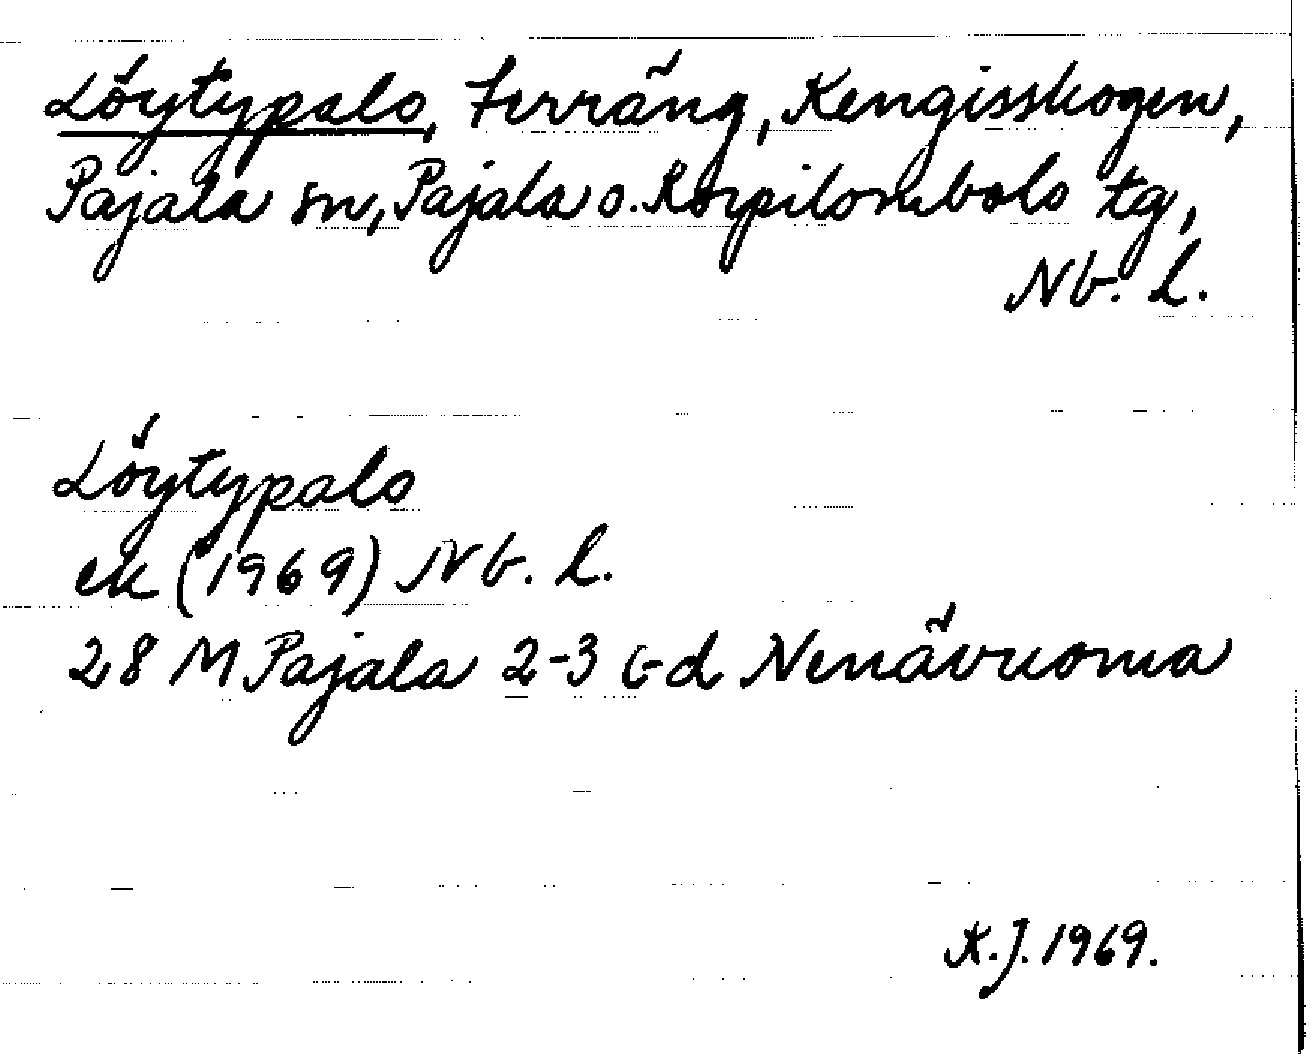 Löytypalo, terräng, Kengisskogen,
Pajala sn, Pajala o. Korpilombolo tg,
Nb. l.
Löytypalo
ek (1969) Nb. l.
28 M Pajala 2-3 c-d Nenävuoma
K.J. 1969.